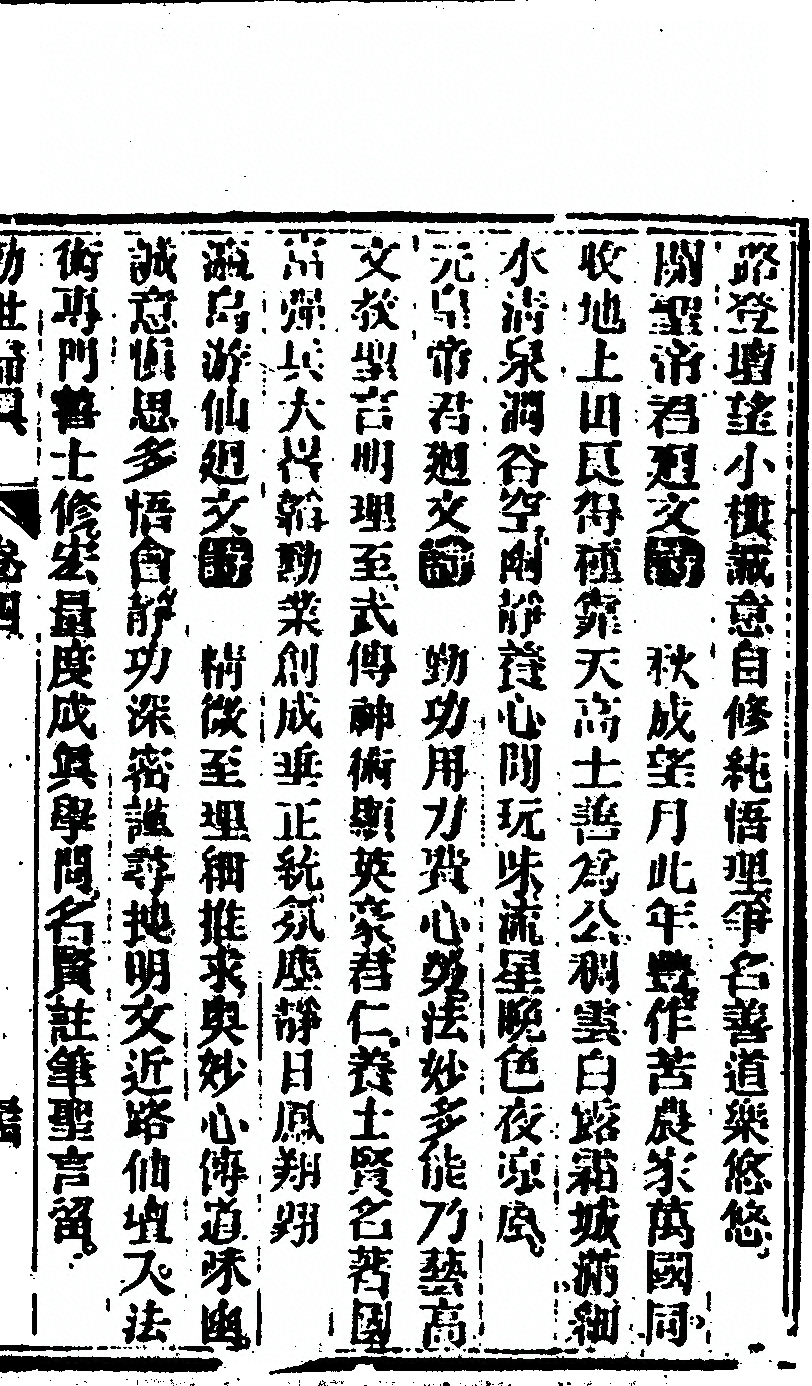 路登壇望小樓誠意自修純悟理爭名善道樂悠悠
關聖帝君廻文詩　秋成望月此年豐作苦農家萬國同
收地上田良得種靠天高士善為公稠雲白露霜城滿細
水清泉澗谷空幽靜養心閒玩味流星晚色夜凉風
元皇帝君廻文詩　勤功用力費心勞法妙多能乃藝高
文教聖言明理至武傳神術顯英豪君仁養士賢名著國
富彊兵大將韜勳業創成垂正統氛塵靜日鳳翔翺
瀛島游仙廻文詩　精微至理細推求奧妙心傳道味幽
誠意慎思多悟會靜功深密謹尋搜明文近路仙壇久法
術專門善士修宏量度成眞學問名賢註筆聖言留
卷四